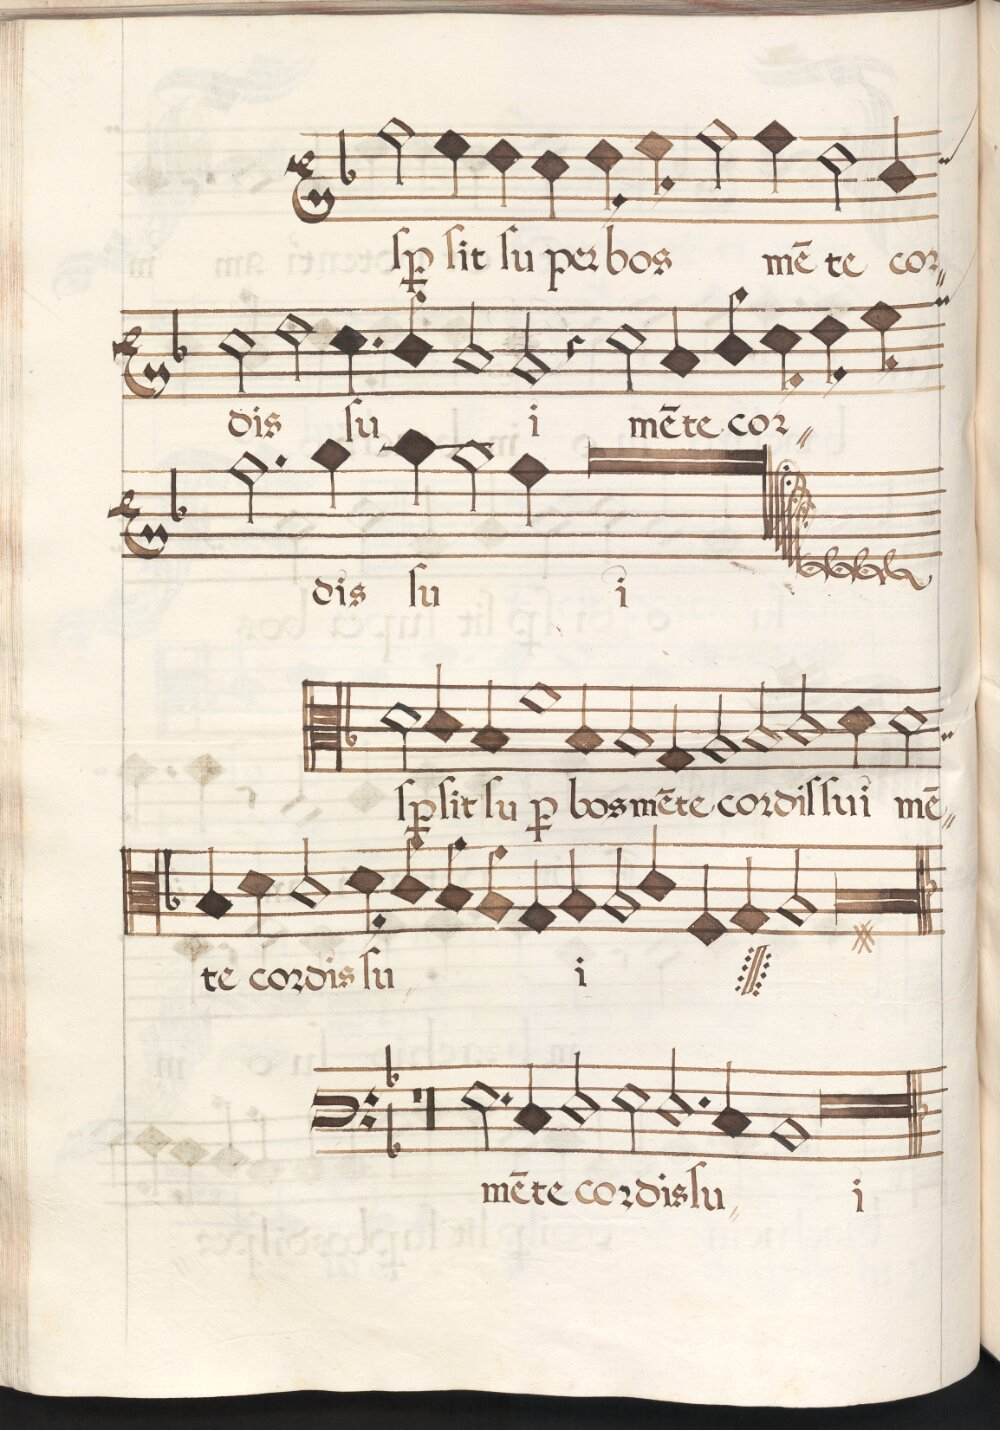 sp̱ sit su per bos mē te cor〃
dis su i mēte cor〃
dis su i
sp̱sit su p̱ bos mēte cordis sui mē〃
te cordis su〃 i
mēte cordis su〃 i